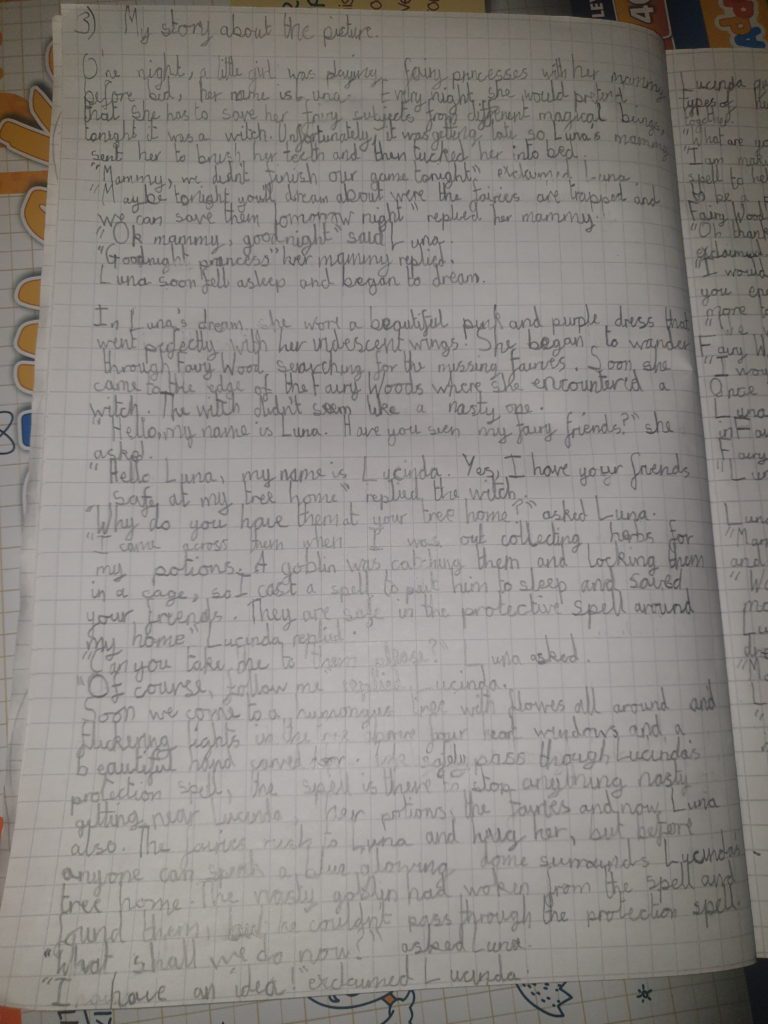 3) My story about the picture.
One night, a little girl was playing fairy princesses with her mammy
before bed, her name is Luna. Every night she would pretend
that she has to save her fairy subjects from different magical beings,
tonight it was a witch. Unfortunately, it was getting late so Luna's mammy
sent her to brush her teeth and then tucked her into bed.
"Mammy, we didnt finish our game tonight" exclaimed Luna.
"Maybe tonight you'll dream about were the fairies are trapped and
we can save them tomorrow night" replied her mammy.
"Ok mammy, goodnight" said Luna.
"Goodnight princess" her mammy replied.
Luna soon fell asleep and began to dream.
In Luna's dream, she wore a beautiful pink and purple dress that
went perfectly with her iridescent wings! She began to wander
through Fairy Wood searching for the missing fairies. Soon she
came to the edge of the Fairy Woods where she encountered a
witch. The witch didn't seem like a nasty one.
"Hello, my name is Luna. Have you seen my fairy friends?" she
asked.
"Hello Luna, my name is Lucinda. Yes, I have your friends
safe at my tree home" replied the witch.
"Why do you have them at your tree home?" asked Luna.
"I came across them when I was out collecting herbs for
my potions. A goblin was catching them and locking them
in a cage, so I cast a spell to put him to sleep and saved
your friends. They are safe in the protective spell around
my home" Lucinda replied.
"Can you take me to them please?" Luna asked.
"Of course, follow me replied Lucinda.
Soon we come to a humongus tree with flowers all around and
flickering lights in the tree above four windows and a
beautiful hand carved door. We safely pass though Lucinda's
protection spell, the spell is there to stop anything nasty
getting near Lucinda, her potions, the fairies and now Luna
also. The fairies rush to Luna and hug her, but before
anyone can speak a blue glowing dome surrounds Lucindas
tree home. The nasty goblin had woken from the spell and
found them, but he couldnt pass through the protection spell.
"What shall we do now?" asked Luna.
"I have an idea!" exclaimed Lucinda.
Lucinda
types of
together.
"What are yo
"I am maki
spell to he
to be a
Fairy Wood
"Oh thank
exclaimed
"I would
you
more to
Fairy W
I wou
Once
Luna
in Fa
Fairy
"Lu
Luna
"Mam
and
"Wo
Lu
"M
L
Add